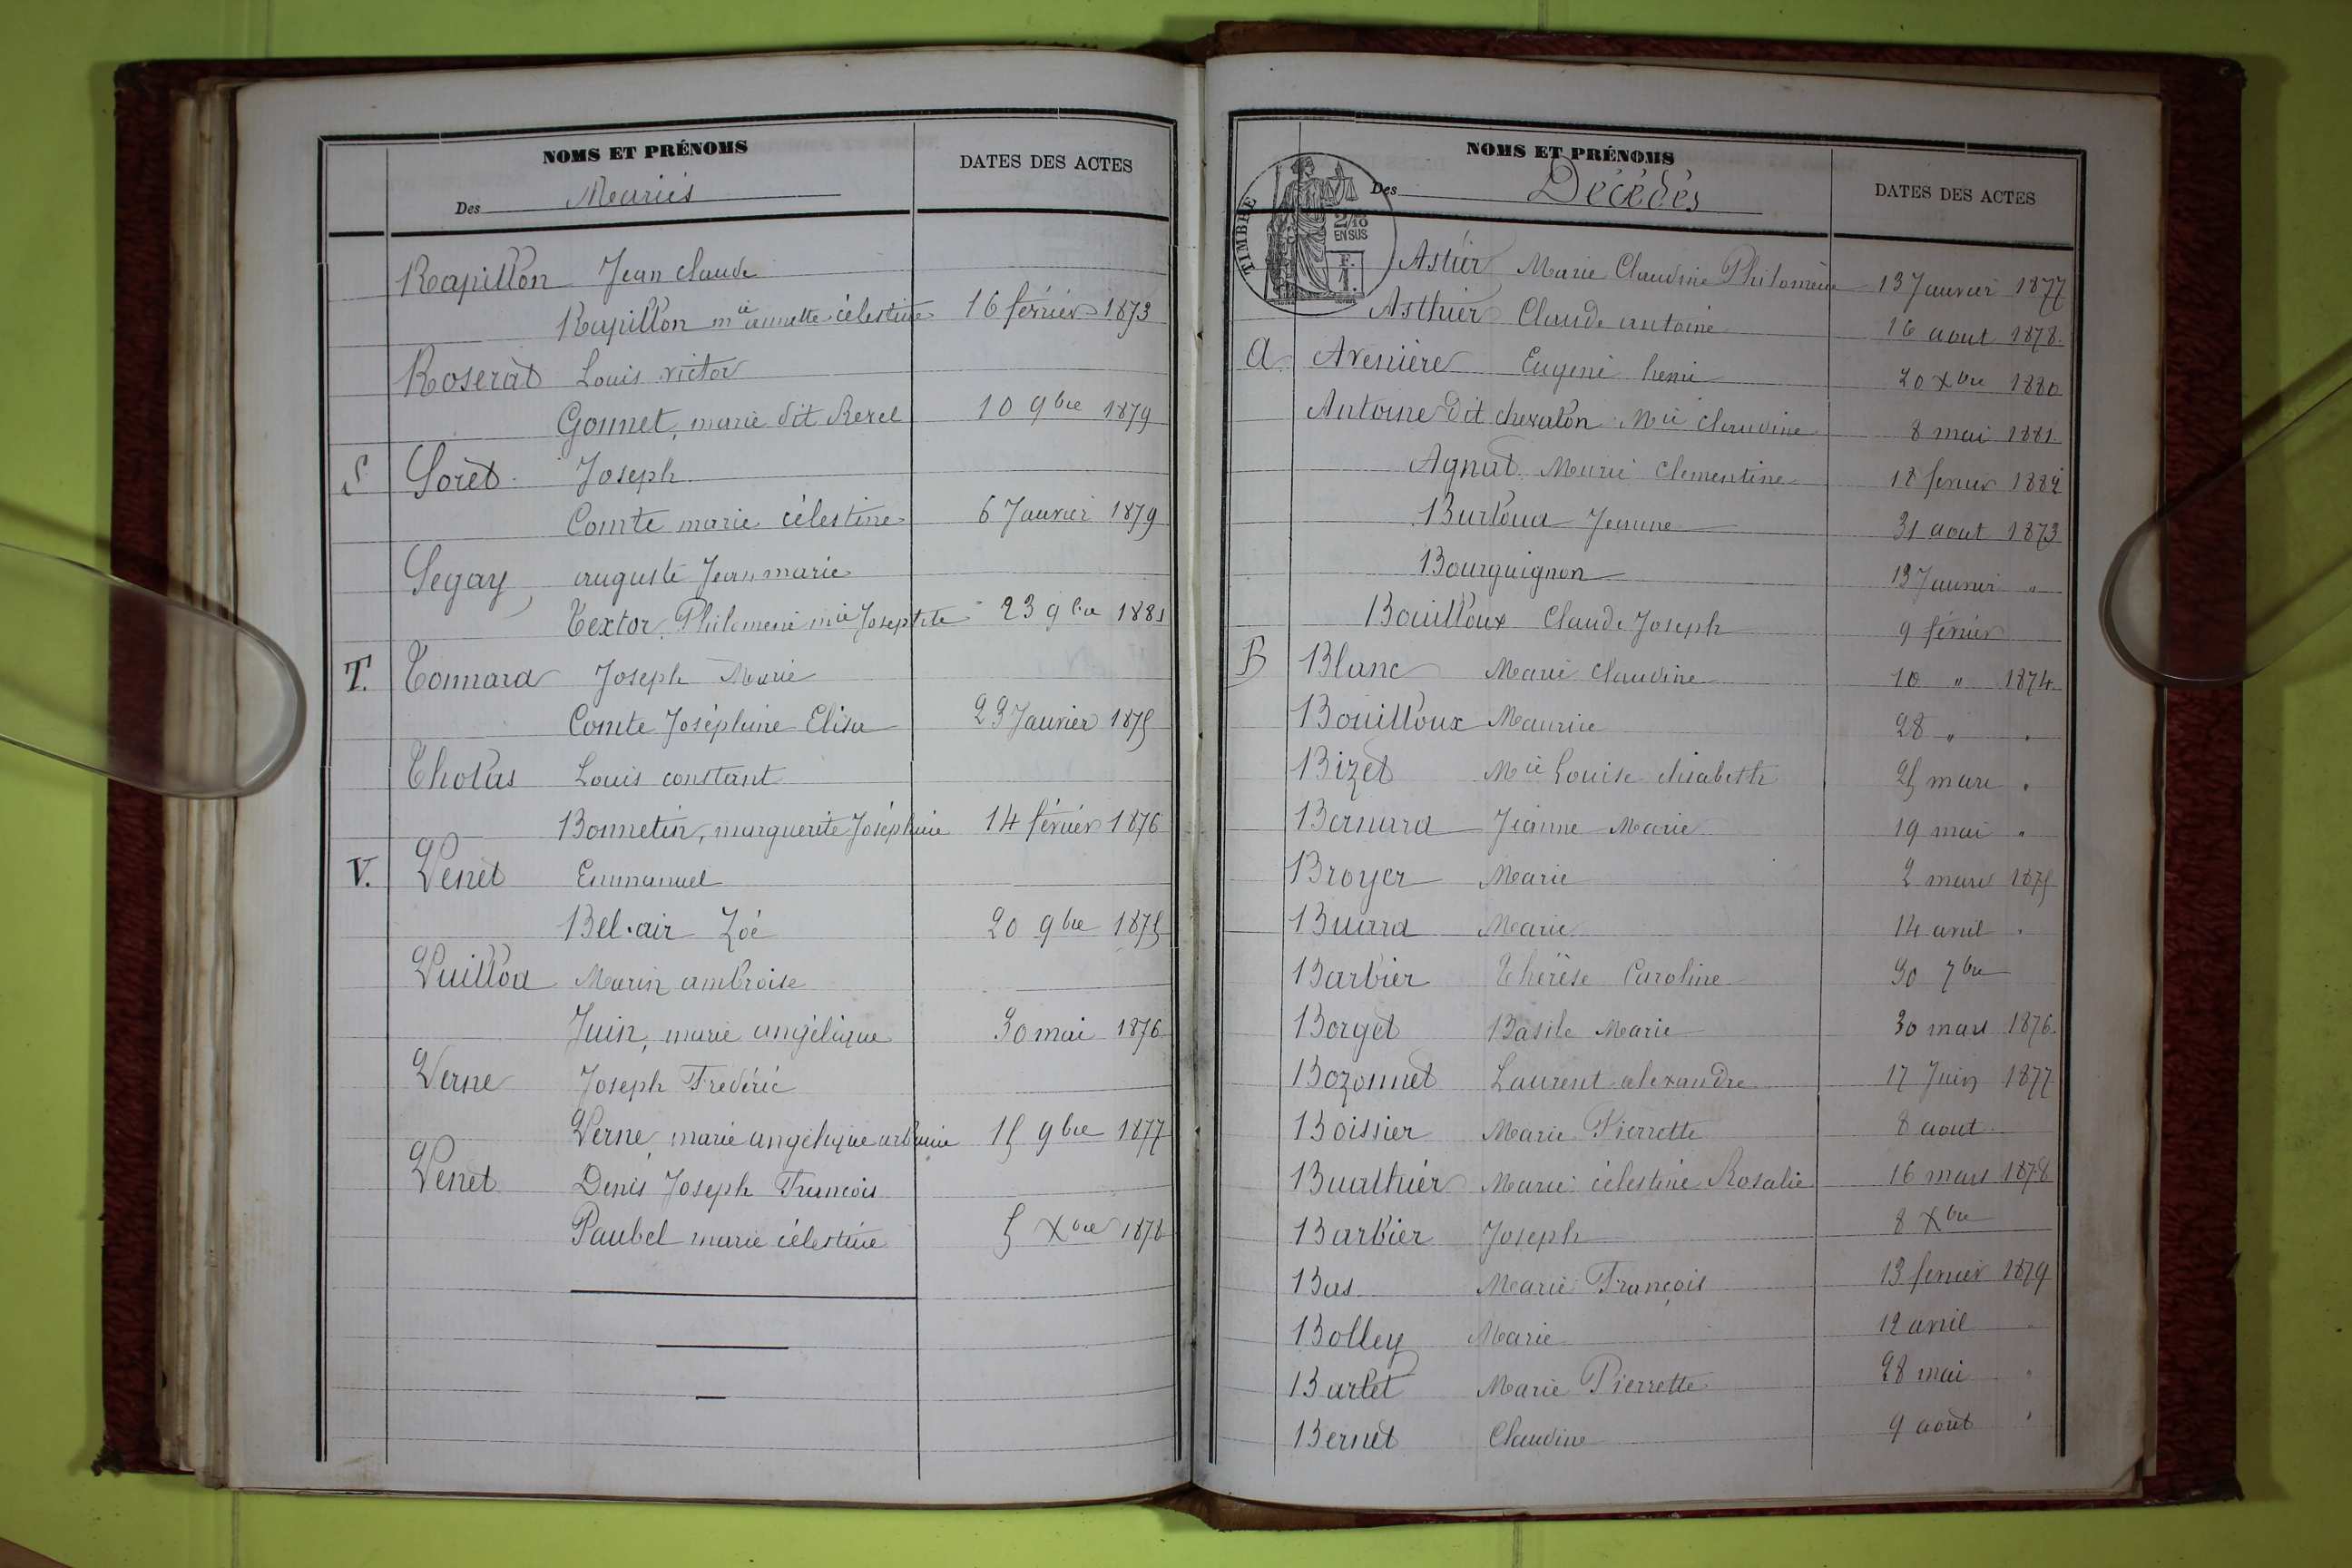 NOMS ET PRÉNOMS
Des Mariés
DATES DES ACTES
Rapillon Jean Claude
Rapillon mie annette célestine 16 février 1873
Roserat Louis victor
Gonnet, marie dit Rerel 10 9bre 1879
S Soret Joseph
Comte marie célestine 6 Janvier 1879
Segay, auguste Jean marie
Textor, Philomene mie Josephte 23 9bre 1881
T. Tonnard Joseph Marie
Comte Joséphine Elisa 23 Janvier 1875
Tholas Louis constant
Bonnetin, marguerite Joséphine 14 février 1876
V. Venet Emmanuel
Bel-air Zoé 20 9bre 1875
Vuillod Marin ambroise
Juin, marie angélique 30 mai 1876
Verne Joseph Frédéric
Verne, marie angélique urbanie 15 9bre 1877
Venet Denis Joseph François
Paubel marie célestine 5 Xbre 1878
NOMS ET PRÉNOMS
Des Décédés
DATES DES ACTES
TIMBRE
2/10
EN SUS
F.
1.
Astier Marie Claudine Philomène 13 Janvier 1877
Asthier Claude antoine 16 aout 1878.
A Avenière Eugene henri 20 Xbre 1880
Antoine dit chevalon Mie Claudine 8 mai 1881.
Agnat Marie Clementine 18 fevrier 1882
Burloud Jeanne 31 aout 1873
Bourguignon 13 Janvier "
Bouilloux Claude Joseph 9 février
B Blanc Marie Claudine 10 " 1874
Bouilloux Maurice 28 " "
Bizet Mie Louise elisabeth 25 mars "
Bernard Jeanne Marie 19 mai "
Broyer Marie 2 mars 1875
Buard Marie 14 avril "
Barbier Thérèse Caroline 30 7bre
Borget Basile Marie 30 mars 1876.
Bozonnet Laurent alexandre 17 Juin 1877
Boissier Marie Pierrette 8 aout
Buathier Marie célestine Rosalie 16 mars 1878
Barbier Joseph 8 Xbre
Bas Marie François 13 fevrier 1879
Bolley Marie 12 avril "
Barlet Marie Pierrette 28 mai "
Bernet Claudine 9 août "